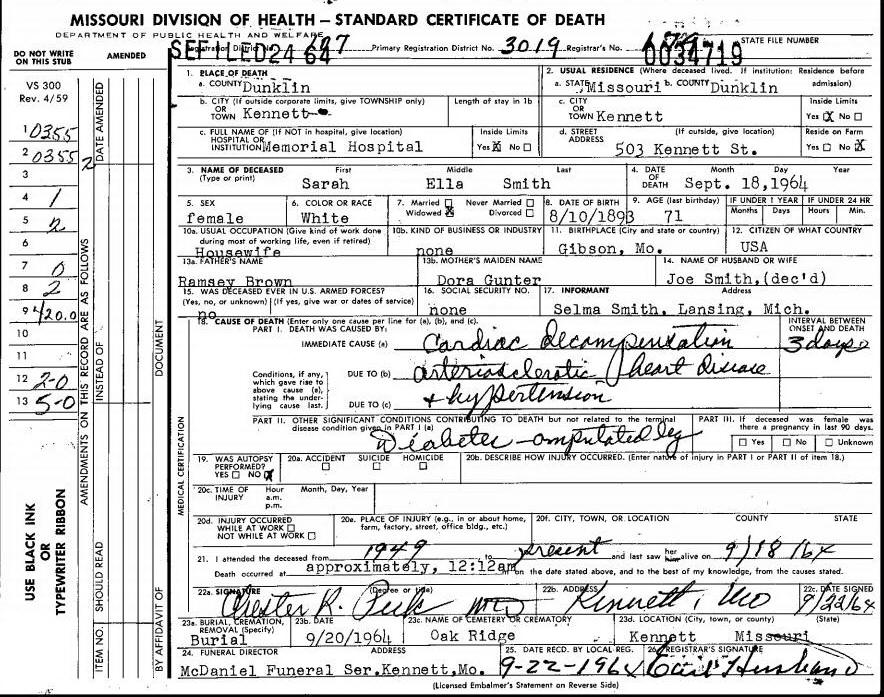 MISSOURI DIVISION OF HEALTH — STANDARD CERTIFICATE OF DEATH
DEPARTMENT OF PUBLIC HEALTH AND WELFARE
SE FILED 24 64
Primary Registration District No. 3019 Registrar's No.
STATE FILE NUMBER
0034719
DO NOT WRITE ON THIS STUB
AMENDED
VS 300
Rev. 4/59
DATE AMENDED
1 0355
2 0355
3
4 1
5 2
6
7 0
8 2
9 420.0
10
11
12 2-0
13 5-0
USE BLACK INK
OR
TYPEWRITER RIBBON
AMENDMENTS ON THIS RECORD ARE AS FOLLOWS
INSTEAD OF
SHOULD READ
ITEM NO.
DOCUMENT
BY AFFIDAVIT OF
MEDICAL CERTIFICATION
1. PLACE OF DEATH
a. COUNTY Dunklin
2. USUAL RESIDENCE (Where deceased lived. If institution: Residence before admission)
a. STATE Missouri b. COUNTY Dunklin
b. CITY (If outside corporate limits, give TOWNSHIP only) OR TOWN Kennett
Length of stay in 1b
c. CITY OR TOWN Kennett
Inside Limits Yes X No
c. FULL NAME OF (If NOT in hospital, give location) HOSPITAL OR INSTITUTION Memorial Hospital
Inside Limits Yes X No
d. STREET ADDRESS (If outside, give location) 503 Kennett St.
Reside on Farm Yes No X
3. NAME OF DECEASED (Type or print)
First Middle Last
Sarah Ella Smith
4. DATE OF DEATH Month Day Year
Sept. 18,1964
5. SEX female
6. COLOR OR RACE White
7. Married Never Married Widowed X Divorced
8. DATE OF BIRTH 8/10/1893
9. AGE (last birthday) 71
IF UNDER 1 YEAR Months Days
IF UNDER 24 HR Hours Min.
10a. USUAL OCCUPATION (Give kind of work done during most of working life, even if retired) Housewife
10b. KIND OF BUSINESS OR INDUSTRY none
11. BIRTHPLACE (City and state or country) Gibson, Mo.
12. CITIZEN OF WHAT COUNTRY USA
13a. FATHER'S NAME Ramsey Brown
13b. MOTHER'S MAIDEN NAME Dora Gunter
14. NAME OF HUSBAND OR WIFE Joe Smith,(dec'd)
15. WAS DECEASED EVER IN U.S. ARMED FORCES? (Yes, no, or unknown) (If yes, give war or dates of service) no
16. SOCIAL SECURITY NO. none
17. INFORMANT Address
Selma Smith, Lansing, Mich.
18. CAUSE OF DEATH (Enter only one cause per line for (a), (b), and (c).
PART I. DEATH WAS CAUSED BY:
INTERVAL BETWEEN ONSET AND DEATH
IMMEDIATE CAUSE (a) Cardiac decompensation 3 days
Conditions, if any, which gave rise to above cause (a), stating the underlying cause last.
DUE TO (b) arteriosclerotic heart disease
DUE TO (c) + hypertension
PART II. OTHER SIGNIFICANT CONDITIONS CONTRIBUTING TO DEATH but not related to the terminal disease condition given in PART I (a)
Diabetes - amputated leg
PART III. If deceased was female was there a pregnancy in last 90 days.
Yes No Unknown
19. WAS AUTOPSY PERFORMED? YES NO X
20a. ACCIDENT SUICIDE HOMICIDE
20b. DESCRIBE HOW INJURY OCCURRED. (Enter nature of injury in PART I or PART II of item 18.)
20c. TIME OF INJURY Hour a.m. p.m. Month, Day, Year
20d. INJURY OCCURRED WHILE AT WORK NOT WHILE AT WORK
20e. PLACE OF INJURY (e.g., in or about home, farm, factory, street, office bldg., etc.)
20f. CITY, TOWN, OR LOCATION COUNTY STATE
21. I attended the deceased from 1949 to present and last saw her alive on 9/18/64
Death occurred at approximately, 12:12am on the date stated above, and to the best of my knowledge, from the causes stated.
22a. SIGNATURE (Degree or title) Chester R. Peck MD
22b. ADDRESS Kennett, Mo
22c. DATE SIGNED 9/22/64
23a. BURIAL, CREMATION, REMOVAL (Specify) Burial
23b. DATE 9/20/1964
23c. NAME OF CEMETERY OR CREMATORY Oak Ridge
23d. LOCATION (City, town, or county) (State)
Kennett Missouri
24. FUNERAL DIRECTOR ADDRESS
McDaniel Funeral Ser.Kennett,Mo.
25. DATE RECD. BY LOCAL REG. 9-22-1964
26. REGISTRAR'S SIGNATURE
(Licensed Embalmer's Statement on Reverse Side)